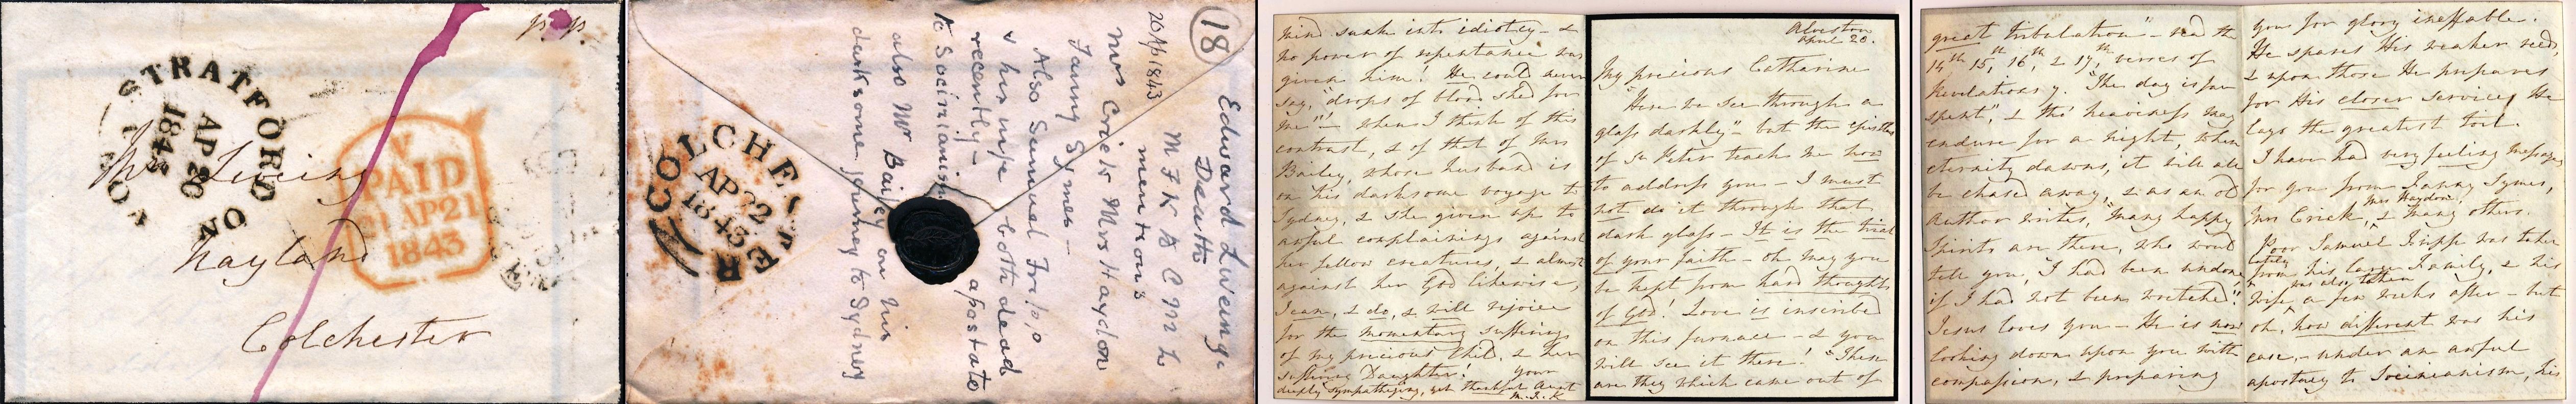 p.p.
STRATFORD ON AVON
AP 20
1843
Mrs Liveing
Nayland
Colchester
V
PAID
21 AP 21
1843
18
Edward Liveing
Death
26 Ap 1843 M F K to C M L
mentions
Mrs Crick Mrs Haydon
Fanny Symes -
Also Samuel Tripp
& his wife both dead
recently - apostate
to Socinianism
also Mr Bailey on his
darksome journey to Sydney
COLCHESTER
AP 22
1843
mind sunk into idiotcy - &
no power of repentance was
given him! He could never
say, "drops of blood shed for
me"! - when I think of this
contrast, & of that of Mrs
Bailey, whose husband is
on his darksome voyage to
Sydney, & she given up to
awful complainings against
her fellow creatures, & almost
against her God likewise,
I can, I do, & will rejoice
for the momentary suffering
of my precious Child, & her
suffering Daughter! your
deeply sympathizing, yet thankful Aunt
M. F. K
Alveston
April 20.
My precious Catharine
"Here we see through a
glass darkly" - but the epistles
of St Peter teach me how
to address you - I must
not do it through that
dark glass - It is the trial
of your faith - oh may you
be kept from hard thoughts
of God! Love is inscribed
on this furnace - & you
will see it there! "These
are they which came out of
great tribulation" - read the
14th 15th, 16th, & 17th, verses of
Revelations 7. "The day is far
spent", & tho' heaviness may
endure for a night, when
eternity dawns, it will all
be chased away, & as an old
Author writes, "many happy
Spirits are there, who would
tell you, "I had been undone,
if I had not been wretched"
Jesus loves you - He is now
looking down upon you with
compassion, & preparing
you for glory ineffable.
He spares His weaker reed,
& upon those He prepares
for His closer service, He
lays the greatest toil.
I have had very feeling messages
for you from Fanny Symes,
Mrs Crick, Mrs Haydon, & many others.
Poor Samuel Tripp was taken
lately from his large Family, & his
wife was also taken a few weeks after - but
oh, how different was his
case, - under an awful
apostacy to Socinianism, his